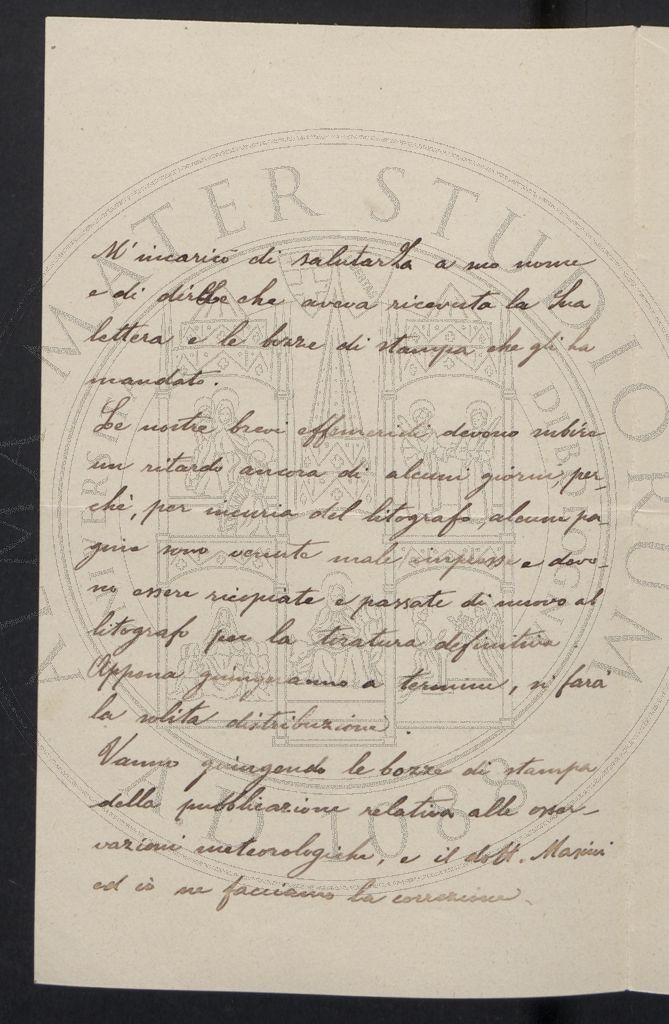 M'incaricò di salutarLa a suo nome
e di dirLe che aveva ricevuta la Sua
lettera e le bozze di stampa che gli ha
mandato.
Le nostre brevi effemeridi devono subire
un ritardo ancora di alcuni giorni, per-
chè, per incuria del litografo, alcune pa-
gine sono venute male impresse e devo-
no essere ricopiate e passate di nuovo al
litografo per la tiratura definitiva.
Appena giungeranno a termine, si farà
la solita distribuzione.
Vanno giungendo le bozze di stampa
della pubblicazione relativa alle osser-
vazioni meteorologiche, e il dott. Masini
ed io ne facciamo la correzione.
ALMA MATER STUDIORUM
A.D. 1088